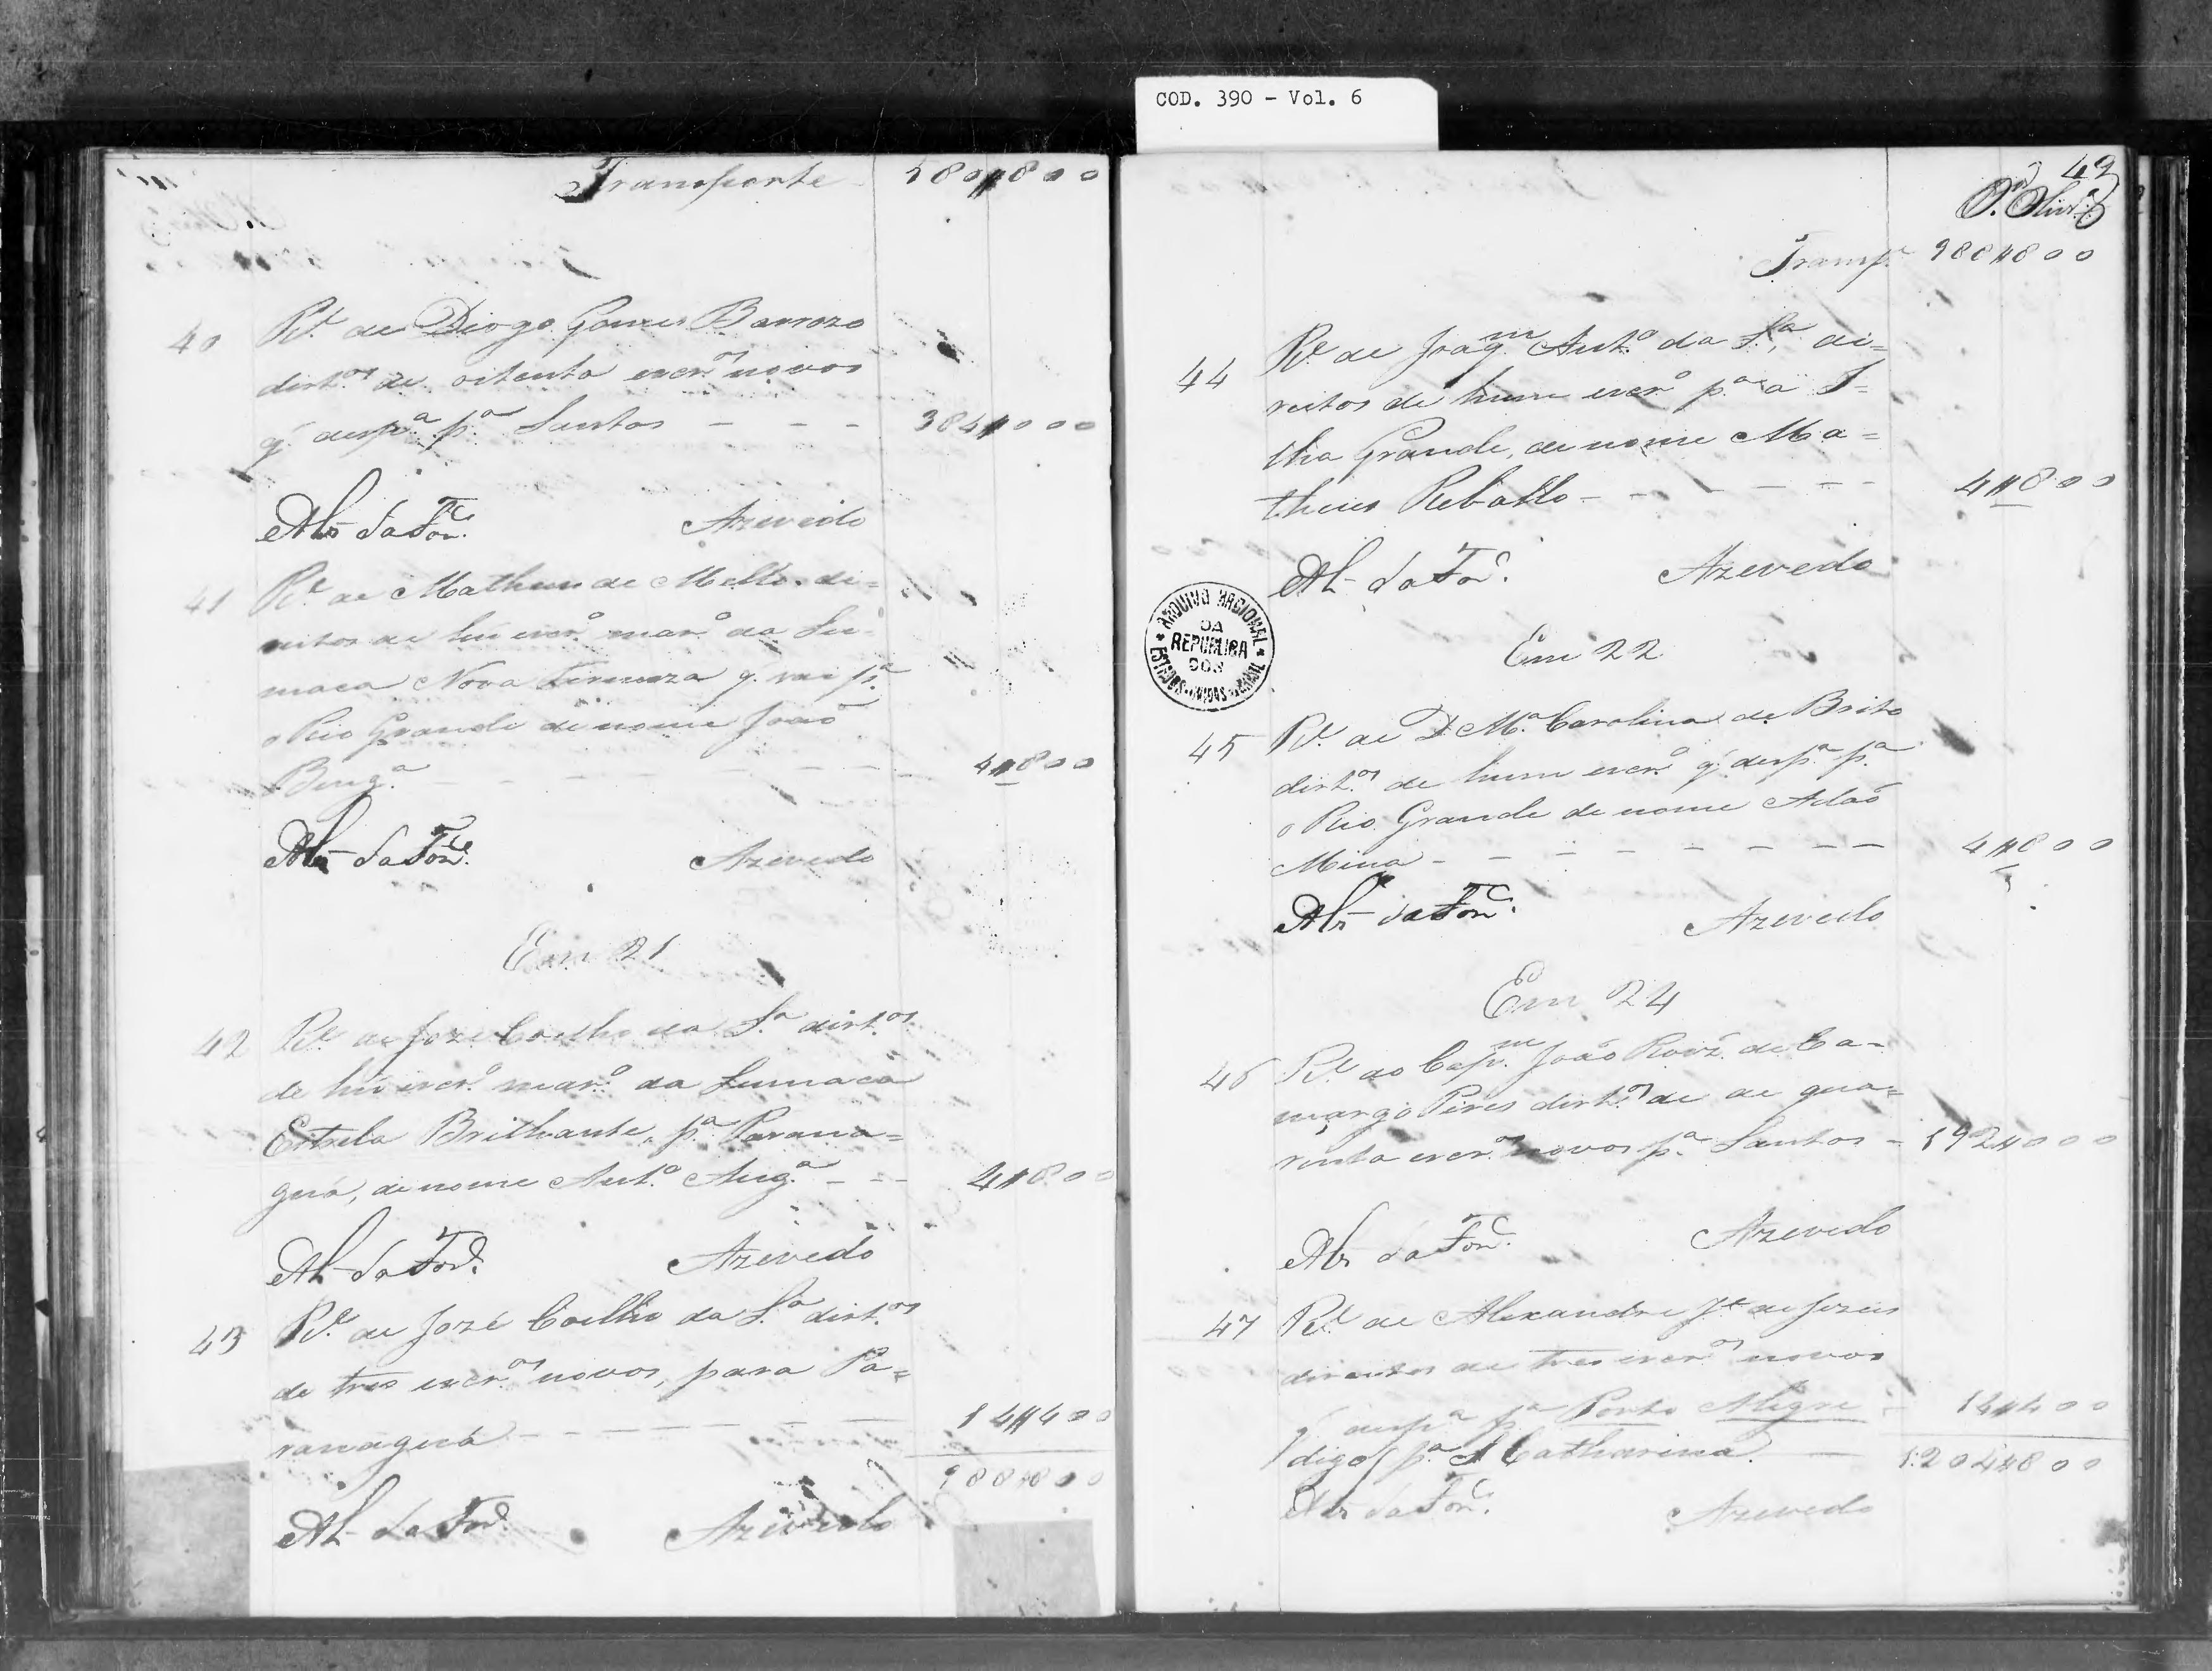 COD. 390 - Vol. 6
Transporte 580#800
40 R.e de Diogo Gomes Barrozo
dirt.os de oitenta escr.os novos
q' desp.a p.a Santos - - - 384#000
Alz da Fon.ca Azevedo
41 R.e de Matheus de Mello di=
reitos de hũ escr.o mar.o da Su=
maca Nova Firmeza q. vai p.a
o Rio Grande de nome João
Beng.a - - - - - - - 4#800
Alz da Fon.ca Azevedo
Em 21
42 R.e de Joze Coelho da S.a dirt.os
de hũ escr.o mar.o da Sumaca
Estrela Brilhante, p.a Parana=
guá, de nome Ant.o Ang.a - - - 4#800
Alz da Fon.ca Azevedo
43 R.e de Jozé Coelho da S.a dirt.os
de tres escr.os novos, para Pa=
ranaguá - - - - - - - 14#400
988#800
Alz da Fon.ca Azevedo
49
Transp.e 988#800
44 R.e de Joaq.m Ant.o da S.a, di=
reitos de hum escr.o p.a a I=
lha Grande, de nome Ma=
theus Rebollo - - - - - - 4#800
Alz da Fon.ca Azevedo
ARQUIVO NACIONAL
DA
REPUBLICA
DOS
ESTADOS UNIDOS DO BRASIL
Em 22
45 R.e de D. M.a Carolina de Brito
dirt.os de hum escr.o q' desp.a p.a
o Rio Grande de nome Adão
Mina - - - - - - - - 4#800
Alz da Fon.ca Azevedo
Em 24
46 R.e do Cap.m João Roiz de Ca=
margo Pires dirt.os de de qua=
renta escr.os novos p.a Santos - 192#000
Alz da Fon.ca Azevedo
47 R.e de Alexandre J.e de Jezus
direitos de tres escr.os novos
q' desp.a p.a Porto Alegre - 14#400
/digo/ p.a S Catharina. - 1:204#800
Alz da Fon.ca Azevedo